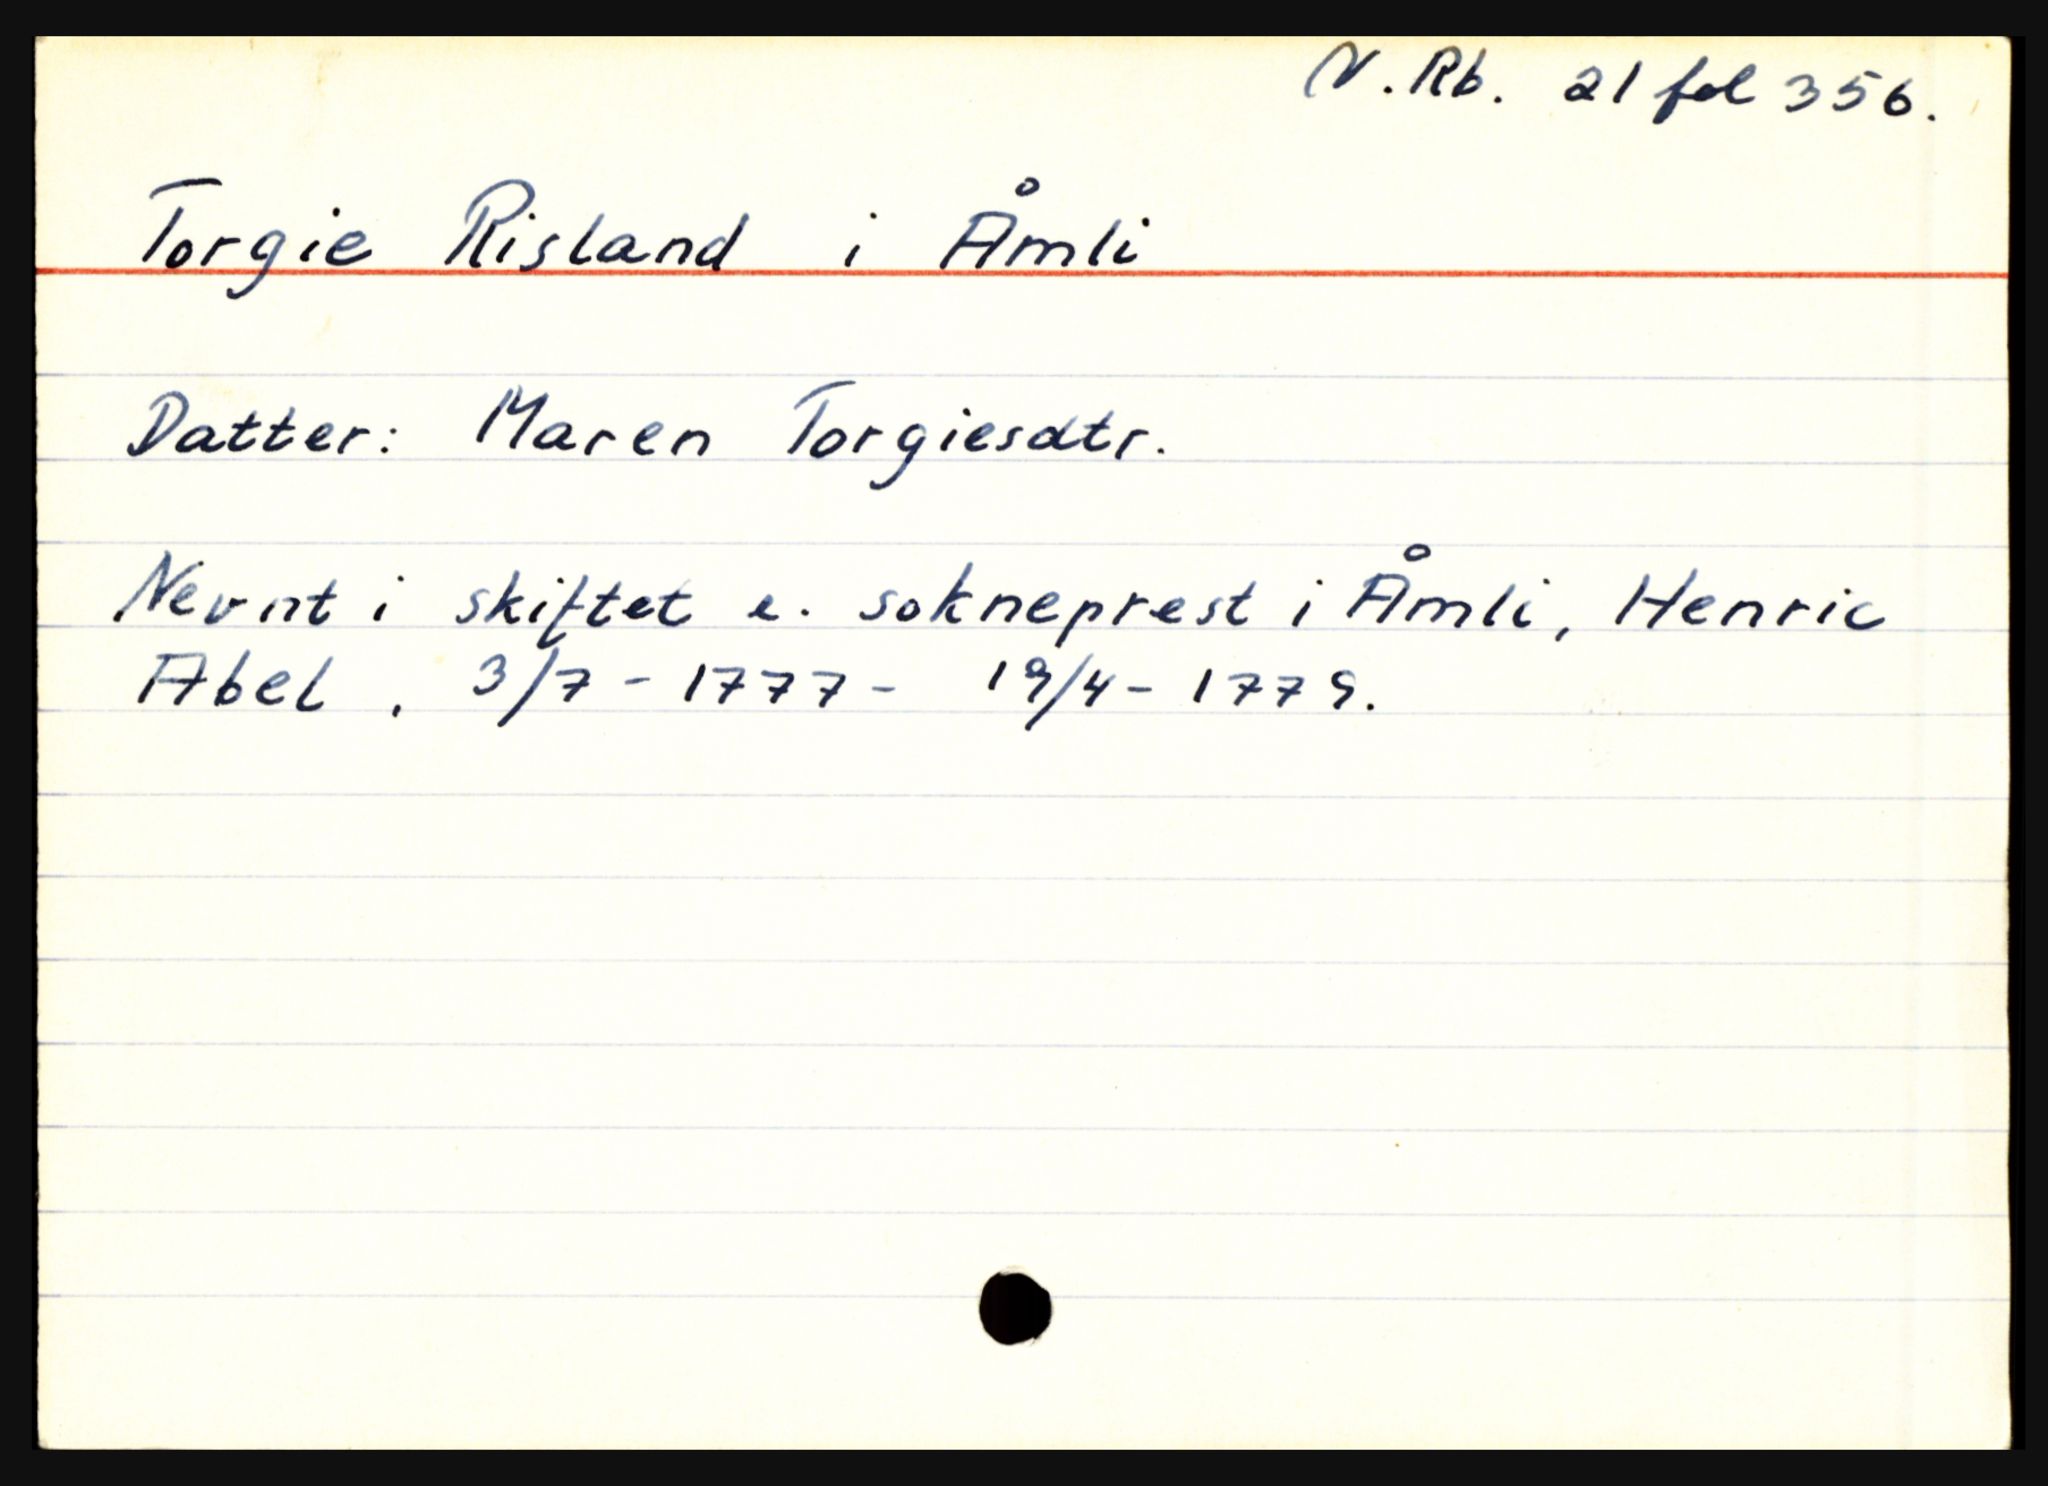 N. Rb. 21 fol 356.
Torgie Risland i Åmli
Datter: Maren Torgiesdtr.
Nevnt i skiftet e. sokneprest i Åmli, Henric
Abel, 3/7 - 1777 - 19/4 - 1779.